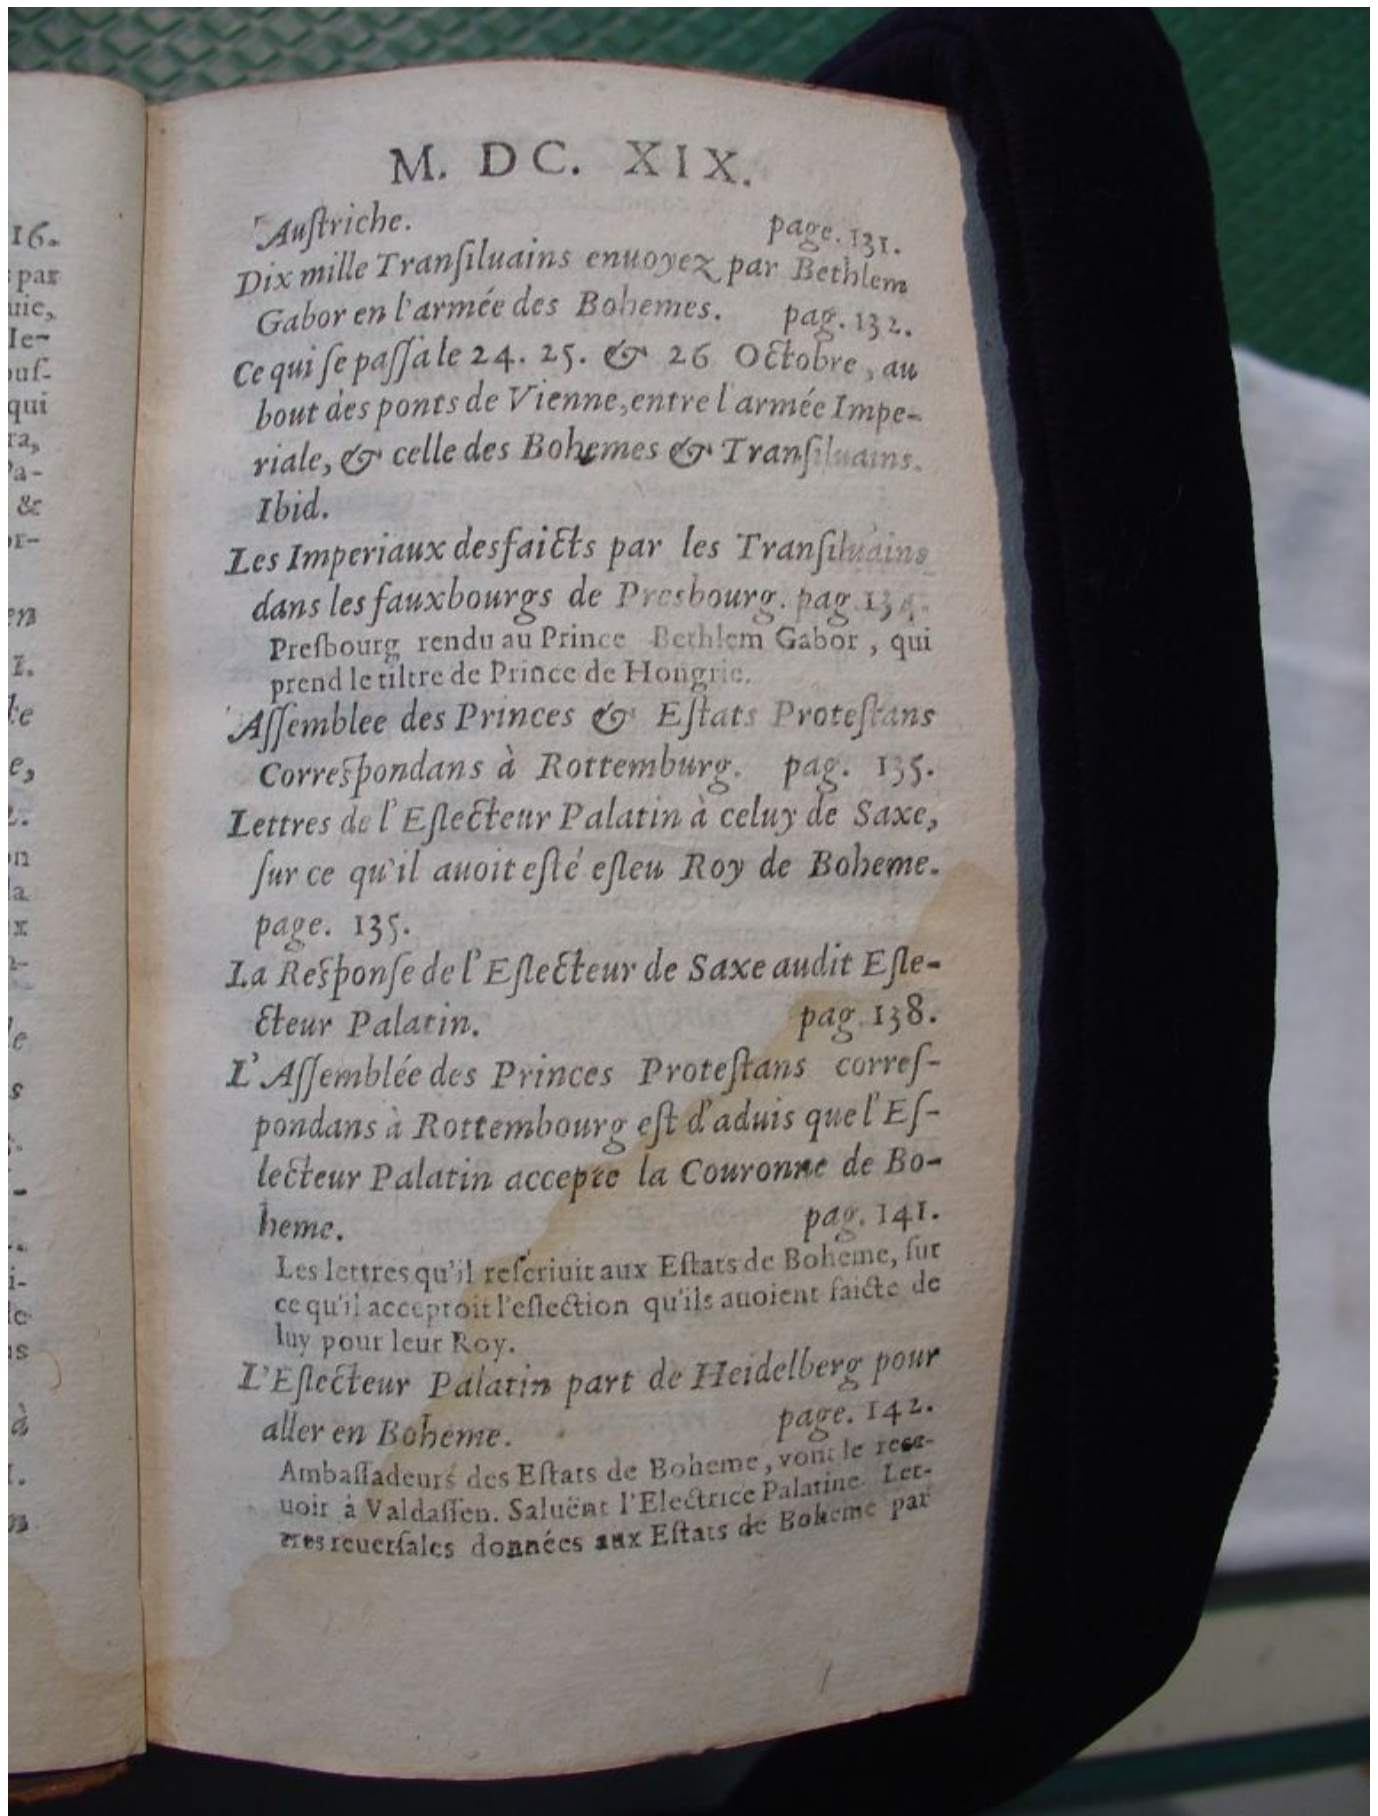 16.
par
uie,
Ie-
ouſ-
qui
ra,
Pa-
&
or-
en
I.
te
e,
2.
on
la
x
le
s
i-
de
ns
à
M. DC. XIX.
Auſtriche. page. 131.
Dix mille Tranſiluains enuoyez par Bethlem
Gabor en l'armée des Bohemes. pag. 132.
Ce qui ſe paſſa le 24. 25. & 26 Octobre, au
bout des ponts de Vienne, entre l'armée Impe-
riale, & celle des Bohemes & Tranſiluains.
Ibid.
Les Imperiaux desfaicts par les Tranſiluains
dans les fauxbourgs de Presbourg. pag. 134.
Preſbourg rendu au Prince Bethlem Gabor, qui
prend le tiltre de Prince de Hongrie.
Aſſemblee des Princes & Eſtats Proteſtans
Correſpondans à Rottemburg. pag. 135.
Lettres de l'Eſlecteur Palatin à celuy de Saxe,
ſur ce qu'il auoit eſté eſleu Roy de Boheme.
page. 135.
La Reſponſe de l'Eſlecteur de Saxe audit Eſle-
cteur Palatin. pag. 138.
L'Aſſemblée des Princes Proteſtans correſ-
pondans à Rottembourg eſt d'aduis que l'Eſ-
lecteur Palatin accepte la Couronne de Bo-
heme. pag. 141.
Les lettres qu'il reſcriuit aux Eſtats de Boheme, ſur
ce qu'il acceptoit l'eſlection qu'ils auoient faicte de
luy pour leur Roy.
L'Eſlecteur Palatin part de Heidelberg pour
aller en Boheme. page. 142.
Ambaſſadeurs des Eſtats de Boheme, vont le rece-
uoir à Valdaſſen. Saluënt l'Electrice Palatine. Let-
tres reuerſales données aux Eſtats de Boheme par